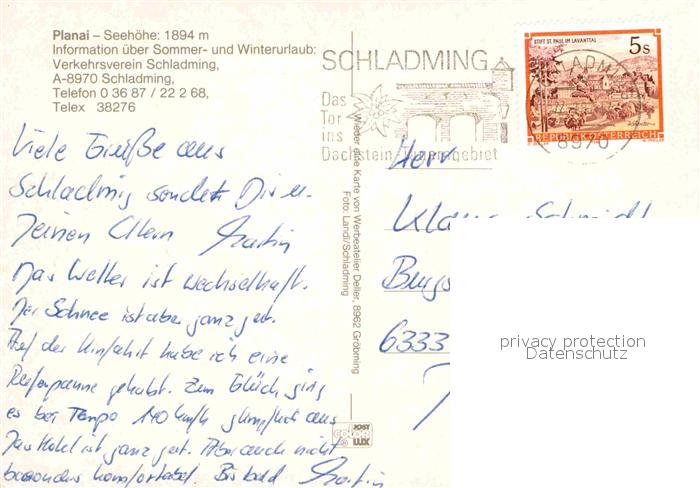 Planai – Seehöhe: 1894 m
Information über Sommer- und Winterurlaub:
Verkehrsverein Schladming,
A-8970 Schladming,
Telefon 0 36 87 / 22 2 68,
Telex 38276
Viele Grüße aus
Schladmig sendet Dir u.
Deinen Eltern Martin
Das Wetter ist wechselhaft.
Der Schnee ist aber ganz gut.
Auf der Hinfahrt habe ich eine
Reifenpanne gehabt. Zum Glück ging
es bei Tempo 140 km/h glimpflich aus
Das Hotel ist ganz gut. Aber auch nicht
besonders komfortabel. Bis bald Martin
Wieder eine Karte von Werbeatelier Deller, 8962 Gröbming
Foto: Landl/Schladming
SCHLADMING
Das
Tor
ins
Dachstein-Tauerngebiet
STIFT ST. PAUL IM LAVANTTAL
5s
REPUBLIK ÖSTERREICH
8970
Herr
Klaus Schmidt
6333
privacy protection
Datenschutz
JOST
COLOR
LUX